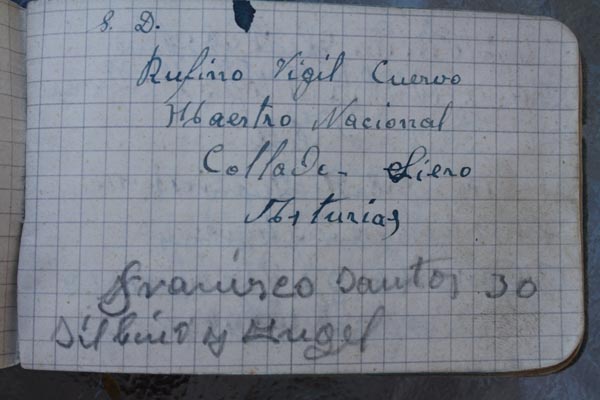 S. D.
Rufino Vigil Cuervo
Maestro Nacional
Collado - Siero
Asturias
Francisco Santos 30
Silbino y Angel